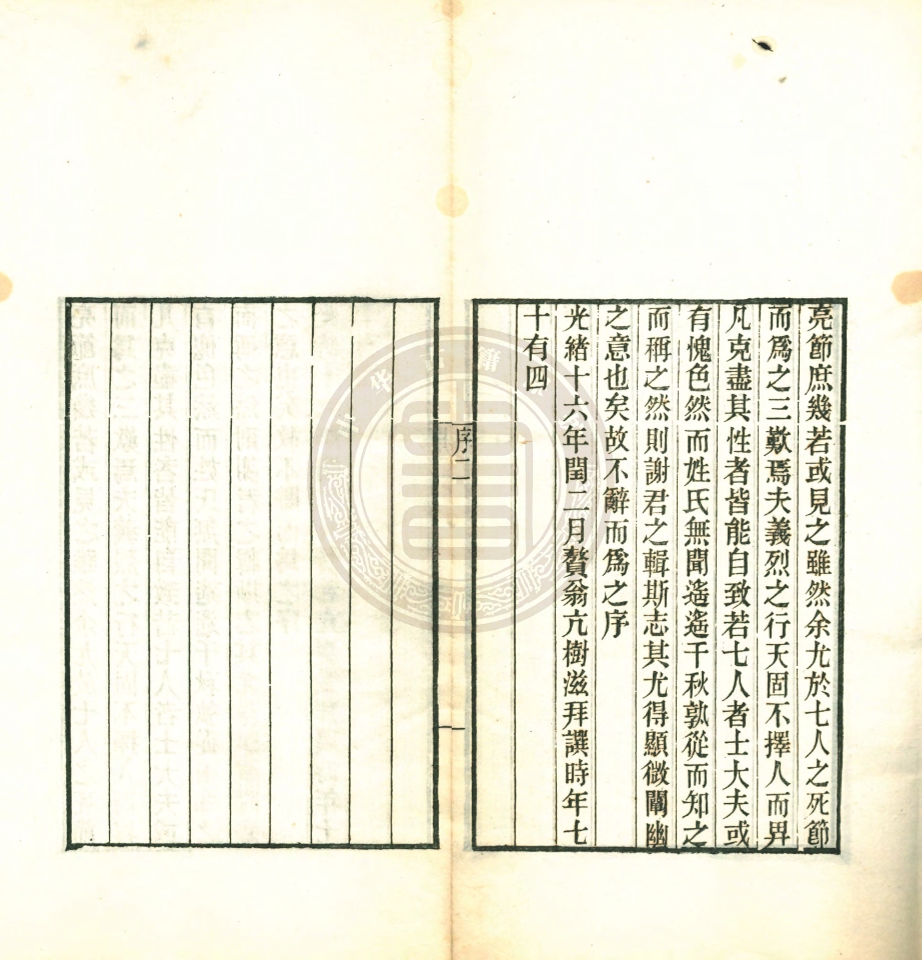 亮節庶幾若或見之雖然余尤於七人之死節
而爲之三歎焉夫義烈之行天固不擇人而畀
凡克盡其性者皆能自致若七人者士大夫或
有愧色然而姓氏無聞遙遙千秋孰從而知之
而稱之然則謝君之輯斯志其尤得顯微闡幽
之意也矣故不辭而爲之序
光緒十六年閏二月贅翁亢樹滋拜譔時年七
十有四
序
二